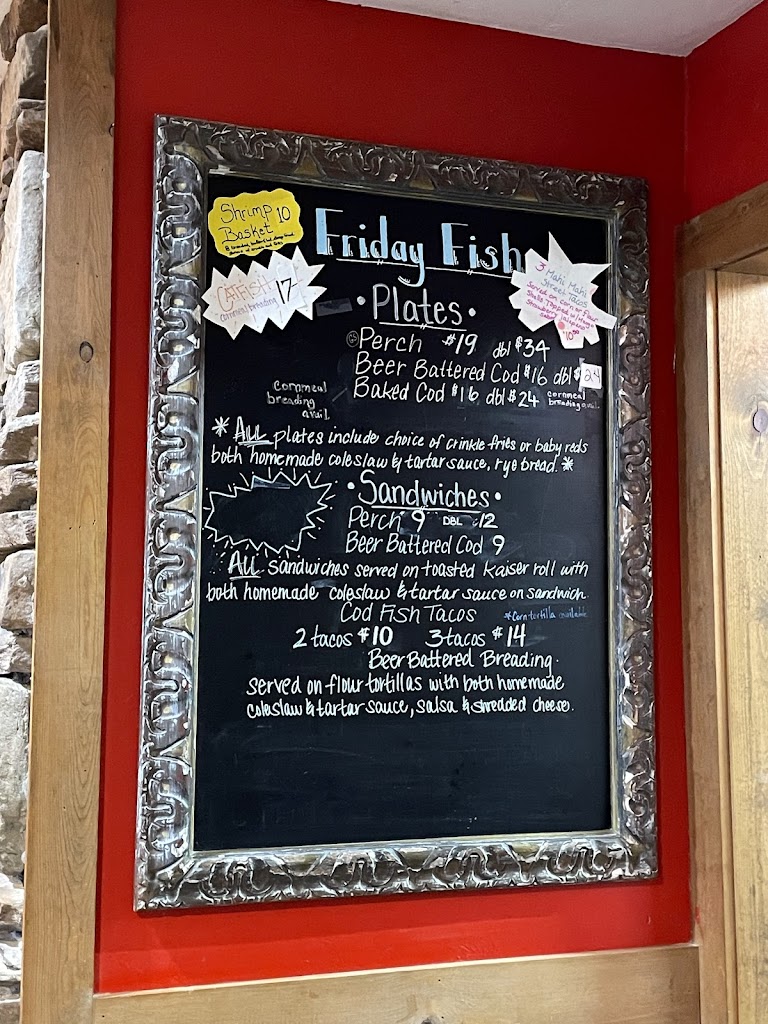 Shrimp 10
Basket
Friday Fish
CATFISH
cornmeal breading 17-
3 Mahi Mahi
Street Tacos
Served on corn or flour
Shells Topped w/
Strawberry Jalapeno
• Plates •
Perch $19 dbl $34
Beer Battered Cod $16 dbl $24
Baked Cod $16 dbl $24
cornmeal
breading avail.
cornmeal
breading
avail.
* ALL plates include choice of crinkle fries or baby reds
both homemade coleslaw & tartar sauce, rye bread. *
• Sandwiches •
Perch 9 DBL 12
Beer Battered Cod 9
ALL Sandwiches served on toasted Kaiser roll with
both homemade coleslaw & tartar sauce on sandwich.
Cod Fish Tacos
*Corn tortilla available
2 tacos $10 3 tacos $14
Beer Battered Breading.
served on flour tortillas with both homemade
coleslaw & tartar sauce, salsa & shredded cheese.